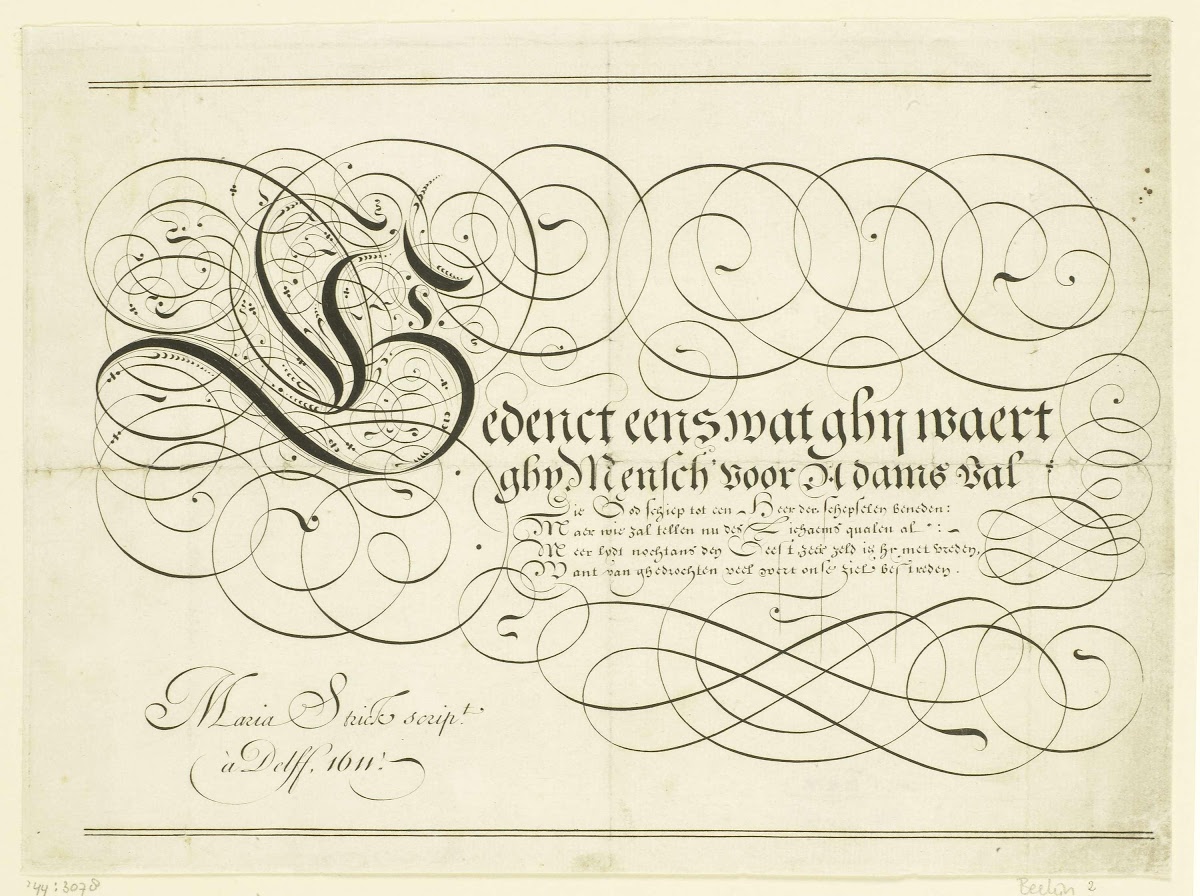 Bedenct eens wat ghy waert
ghy Mensch voor Adams Val
Die God schiep tot een Heer der schepselen beneden:
Maer wie zal tellen nu des Lichaems qualen al:
Meer lydt nochtans den Geest zeer zeld is hy met vreden,
Want van ghedrochten veel wert onse ziel bestreden.
Maria Strick scrip.t
à Delff, 1611.
'44:3078
2